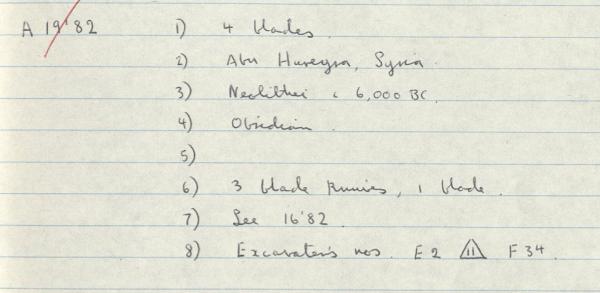 A 19'82 1) 4 blades.
2) Abu Hureyra, Syria.
3) Neolithic c 6,000 BC.
4) Obsidian.
5)
6) 3 blade knives, 1 blade.
7) See 16'82.
8) Excavator's nos. E2 11 F34.